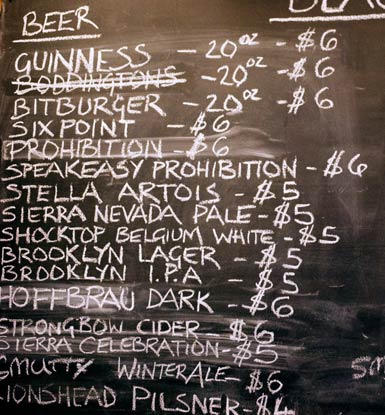 BEER
GUINNESS - 20oz - $6
BODDINGTONS - 20oz - $6
BITBURGER - 20oz - $6
SIXPOINT - $6
PROHIBITION - $6
SPEAKEASY PROHIBITION - $6
STELLA ARTOIS - $5
SIERRA NEVADA PALE - $5
SHOCKTOP BELGIUM WHITE - $5
BROOKLYN LAGER - $5
BROOKLYN I.P.A - $5
HOFFBRAU DARK - $6
STRONGBOW CIDER - $6
SIERRA CELEBRATION - $5
SMUTTY WINTER ALE - $6
LIONSHEAD PILSNER - $4